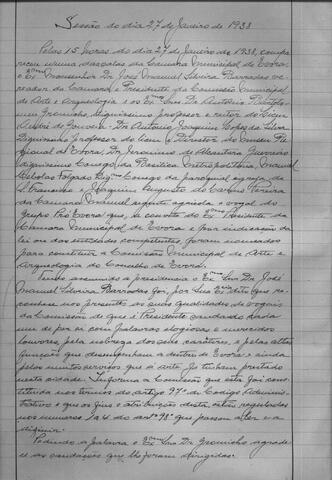 Sessão do dia 27 de Janeiro de 1938
Pelas 15 horas do dia 27 de Janeiro de 1938, compa-
receu numa das salas da Camara Municipal de Evora,
o Exmo Senhor Dr. José Manuel Silveira Barradas ve-
reador da Camara e Presidente da Comissão Municipal
de Arte e Arqueologia e os Exmos Snrs Dr. Antonio Bartolo-
meu Gromicho, dignissimo professor e reitor do Liceu
André de Gouveia, Dr. Antonio Joaquim Lopes da Silva,
dignissimo professor do Liceu e Director do Museu Re-
gional de Evora, Dr. Jeronimo de Alcantara Guerreiro
dignissimo Conego da Basilica Metropolitana, Manuel
Folgado Dig.mo Conego da paroquial egreja de
S. Francisco e Joaquim Augusto Camara Pereira
da Camara Manuel agricola e vogal do
Grupo Pró Evora que, a convite do Exmo Presidente da
Câmara Municipal de Evora e por indicação da
lei ou das entidades competentes, foram nomeados
para constituir a Comissão Municipal de Arte e
Arqueologia do Concelho de Evora.
Tendo assumido a presidencia o Exmo Sr. Dr. José
Manuel Silveira Barradas foi, por Sua Exa dito que re-
conhece nos presentes as suas qualidades de vogais
da Comissão de que é Presidente saudando cada
um de per si com palavras elogiosas e merecidos
louvores, pela nobreza dos seus carateres, e pelas altas
funções que desempenham a dentro de Evora e ainda
pelos muitos serviços que á arte, já tinham prestado
nesta cidade. Informa a Comissão que esta foi cons-
tituida nos termos do artigo 97º do Codigo Adminis-
trativo e que os fins e atribuições desta estão regulados
nos numeros 1 a 4 do artº 98º que passou a ler e a
digerir.
Pedindo a palavra o Exmo Snr Dr. Gromicho agrade-
ce as saudações que lhe foram dirigidas.